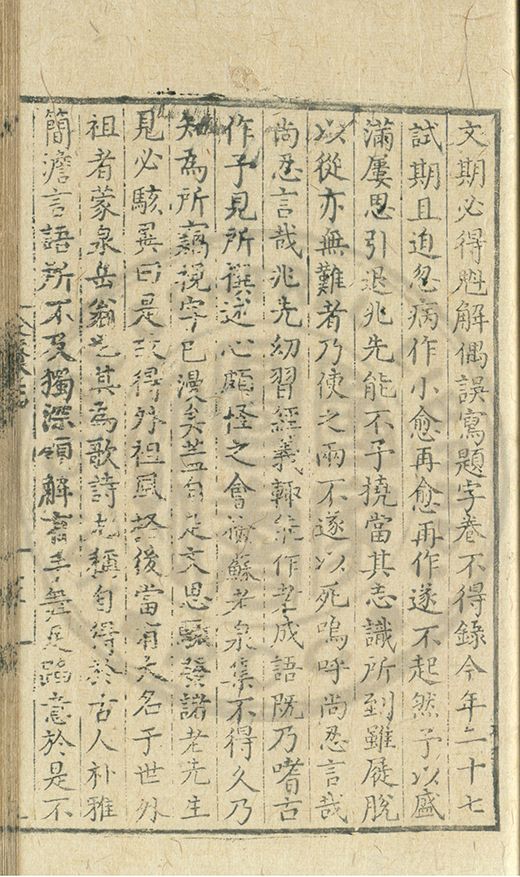 文期必得魁解偶誤寫題字卷不得錄今年二十七
試期且迫忽病作小愈再愈再作遂不起然予以盛
滿屢思引退兆先能不予撓當其志識所到雖屣脫
以從亦無難者乃使之兩不遂以死嗚呼尚忍言哉
尚忍言哉兆先幼習經義輒能作老成語既乃嗜古
作予見所撰述心頗怪之會檢蘇老泉集不得久乃
知為所竊視字已漫矣蓋自是文思驟發諸老先生
見必駭異曰是故得外祖風格後當有大名于世外
祖者蒙泉岳翁也其為歌詩尤稱自得於古人朴雅
簡澹言語所不及獨深領解言手意於是不